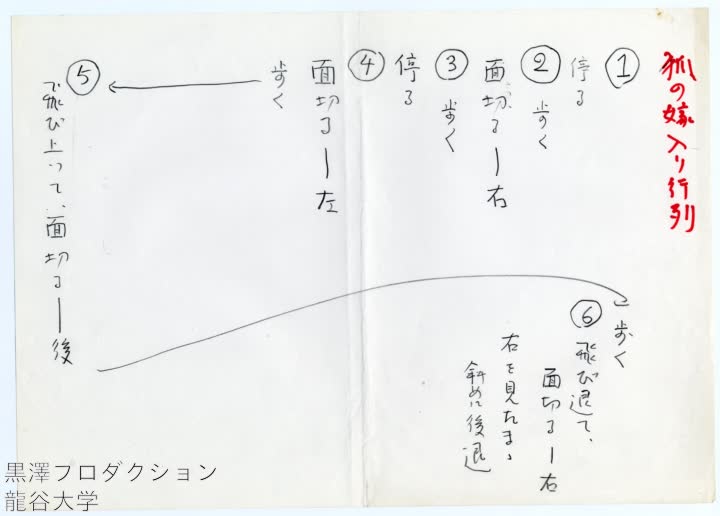 狐の嫁入り行列
①
停る
② 歩く
面切る—右
③ 歩く
停る
④
面切る—左
歩く
⑤
飛び上って、面切る—後
歩く
⑥ 飛び退て、
面切る—右
右を見たまゝ
斜めに後退
黒澤プロダクション
龍谷大学